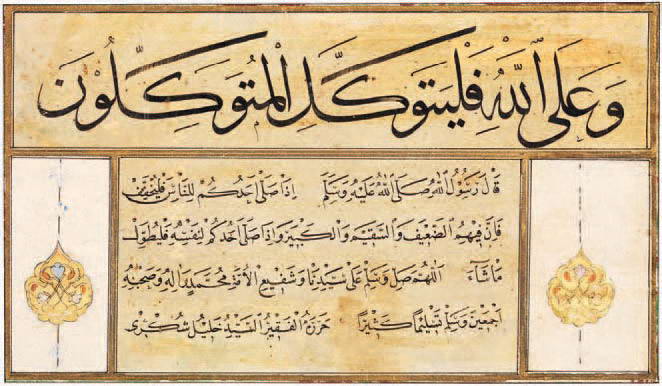 وَعَلَى اللّٰهِ فَلْيَتَوَكَّلِ الْمُتَوَكِّلُونَ
قَالَ رَسُولُ اللّٰهِ صَلَّى اللّٰهُ عَلَيْهِ وَسَلَّمَ اِذَا صَلَّى اَحَدُكُمْ لِلنَّاسِ فَلْيُخَفِّفْ
فَاِنَّ فِيهِمُ الضَّعِيفَ وَالسَّقِيمَ وَالْكَبِيرَ وَاِذَا صَلَّى اَحَدُكُمْ لِنَفْسِهِ فَلْيُطَوِّلْ
مَا شَاءَ اَللّٰهُمَّ صَلِّ وَسَلِّمْ عَلَى سَيِّدِنَا وَشَفِيعِ الْاُمَّةِ مُحَمَّدٍ وَاٰلِهِ وَصَحْبِهِ
اَجْمَعِينَ وَسَلِّمْ تَسْلِيمًا كَثِيرًا حَرَّرَهُ الْفَقِيرُ السَّيِّدُ خَلِيلُ شُكْرِى